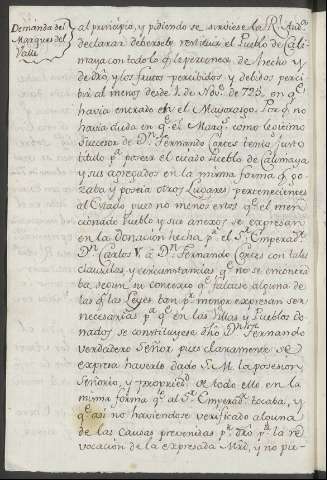 Demanda del
Marques del
Valle
al principio, y pidiendo se sirviese la Rl. Audª
declarar debersele restituir el Pueblo de Cali-
maya con todo lo q.e le pertenecia de hecho y
de dro, y los frutos percibidos, y debidos perci-
bir al menos desde 1. de Nov.e de 725, en q.e
havia entrado en el Mayorazgo. Por q.e no
havia duda en q.e el Marq.s como legitimo
succesor de D.n Fernando Cortes tenia justo
titulo p.a poseer el citado Pueblo de Calimaya
y sus agregados en la misma forma q.e go-
zaba y poseia otros Lugares pertenecientes
al Estado, pues no menos estos q.e el men-
cionado Pueblo y sus anexos se expresan
en la Donacion hecha p.r el S.r Emperad.r
D.n Carlos V. à D.n Fernando Cortes con tales
clausulas, y circunstancias q.e no se encontra-
ba, segun su contexto q.e faltase alguna de
las q.e las Leyes tan p.r menor expresan ser
necesarias p.a q.e en las Villas y Pueblos do-
nados se constituyese dho D.n Fernando
verdadero Señor, pues claramente se
expresa haverle dado S. M. la posesion,
Señorio, y propried.d de todo ello en la
misma forma q.e al S.r Emperad.r tocaba, y
q.e asi no haviendose verificado alguna
de las causas prevenidas p.r dro p.a la re-
vocacion de la expresada Mrd, y no pu-